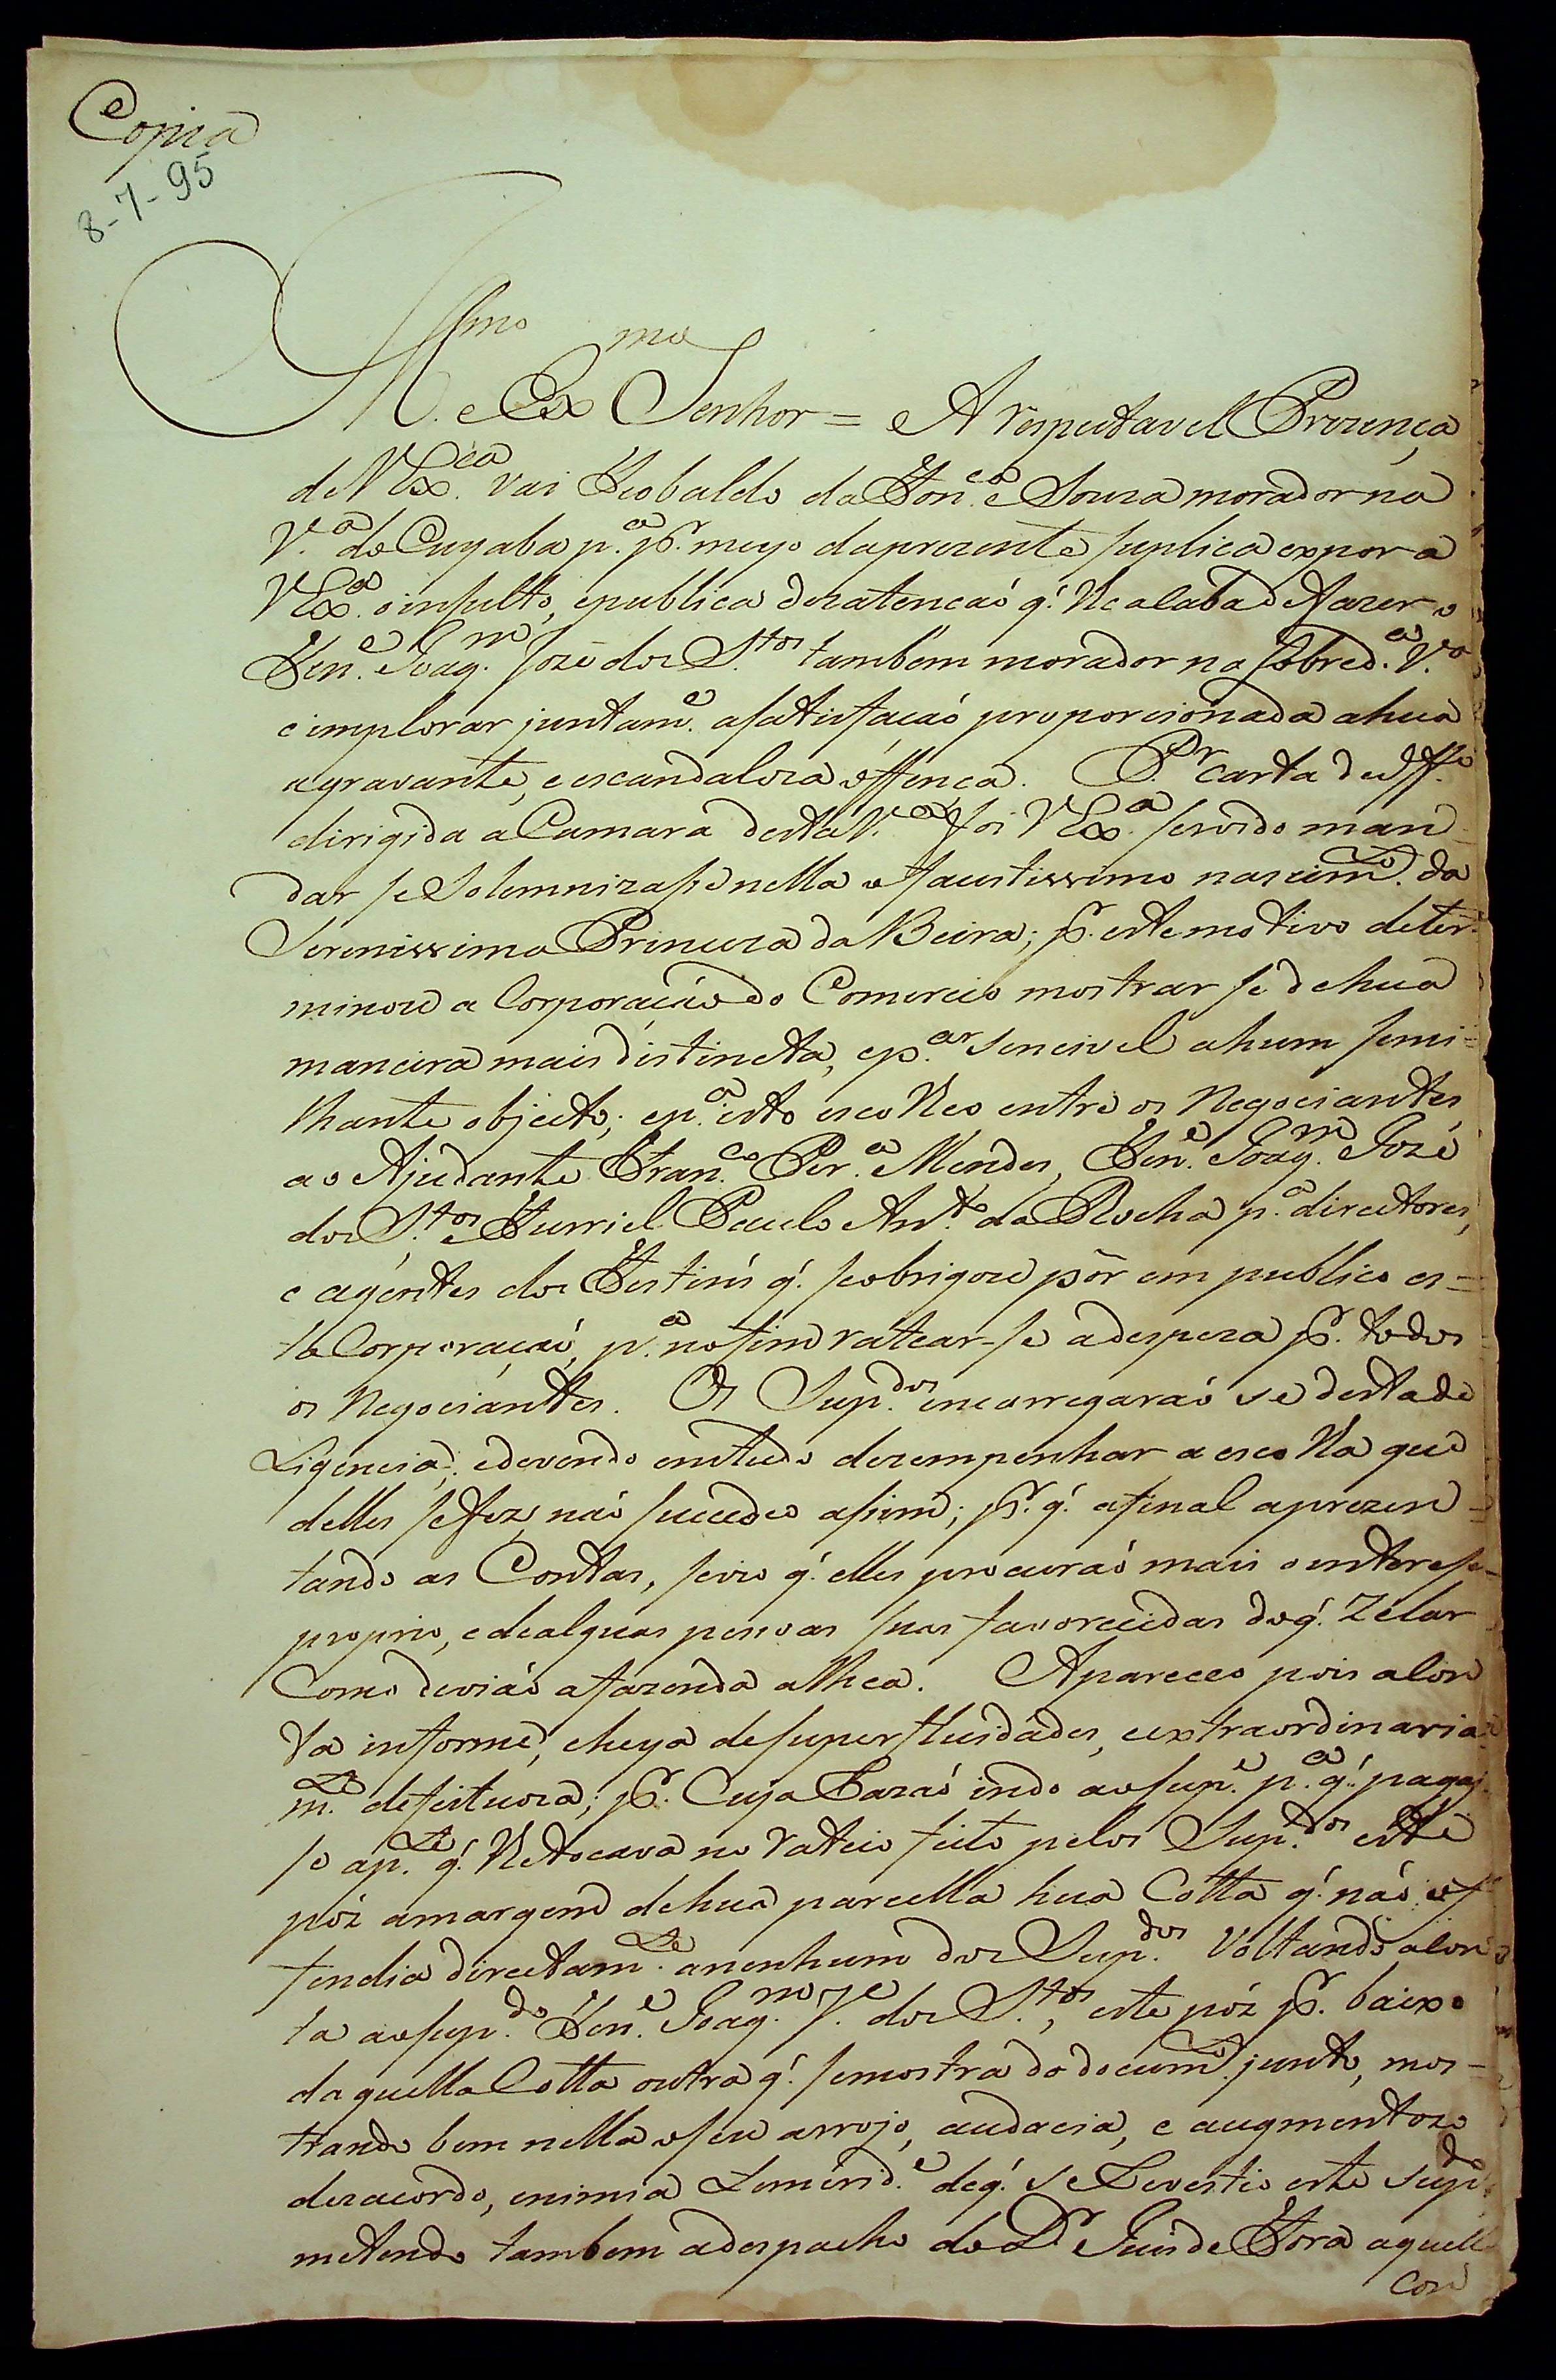 Copia
8-7-95
Ill.mo e Ex.mo Senhor = A respectavel Prezença
de V Ex.cia vai Teobaldo da Fon.ca e Souza morador na
V.a do Cuyaba p.a p.r meyo da prezente suplica expor a
V Ex.a o insulto, e publica dezatençaó q.' lhe acaba de fazer o
Ten.e Joaq.m Jozé dos S.tos tambem morador na sobred.a V.a
e implorar juntam.e a satisfaçaó proporcionada a hua
agravante, e escandaloza offença. P.r carta de off.o
dirigida a Camara desta V.a foi V Ex.a servido man-
dar se Solemnizasse nella o faustissimo nascim.to da
Serenissima Princeza da Beira; p.r este motivo deter-
minou a Corporação do Comercio mostrar se de hua
maneira mais distincta, e p.ar sencivel a hum semi-
lhante objecto; e p.a isto escolheo entre os Negociantes
ao Ajudante Fran.co Per.a Mendes, Ten.e Joaq.m Jozé
dos S.tos e Furriel Paulo Ant.o da Rocha p.a directores,
e agentes dos Festins q.' se obrigou pôr em publico es-
ta Corporaçaó, p.a no fim ratear-se a despeza p.r todos
os Negociantes. Os Sup.dos encarregaraó se desta de
Ligencia; e devendo em tudo dezempenhar a escolha que
delles se fez, naó succedeo assim; p.r q.' a final aprezen-
tando as Contas, se vio q.' elles procuraó mais o interesse
proprio, e de alguas pessoas suas favorecidas do q.' Zelar
Como deviaó a fazenda alhea. Apareceo pois a Con
ta informe, cheya de superfluidades, e extraordinaria-
m.te defeituoza; p.r Cuja Razaó indo ao sup.e p.a q.' pagas-
se a p.te q.' lhe tocava no rateio feito pelos Sup.dos este
pôz a margem de hua parcella hua Cotta q.' naó of-
fendia directam.te a nenhum dos Sup.dos Voltando a Con
ta ao sup.do Ten.e Joaq.m J.e dos S.tos, este pôz p.r baixo
daquella Cotta outra q.' se mostra do docum.to junto, mos-
trando bem nella o seu arrojo, audacia, e augmentozo
dezacordo, e nimia temerid.e de q.' se Revestio este sup.do
metendo tambem a despacho do D.r Juis de Fora aquella
Con